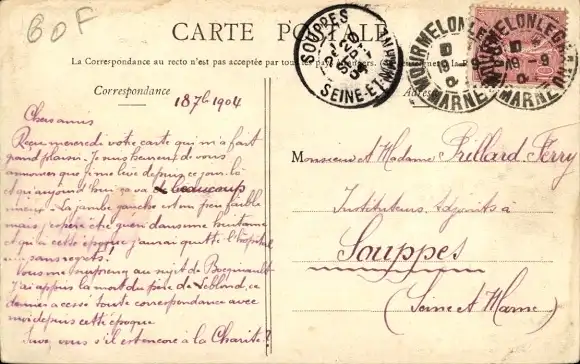 60F
CARTE POSTALE
La Correspondance au recto n'est pas acceptée par tous les pays
Correspondance
SOUPPES
SEINE-ET-MARNE
MOURMELON LE GRAND
19 - 9
MARNE
MOURMELON LE GRAND
19 - 9
MARNE
10
18 7b 1904
Chers amis
Reçu mercredi votre carte qui m'a fait
grand plaisir. Je suis heureux de vous
annoncer que je me lève depuis ce jour-là
et qu'aujourd'hui ça va beaucoup
mieux. La jambe gauche est un peu faible
mais j'espère être guéri dans une huitaine
et qu'à cette époque j'aurai quitté l'hôpital
sans regrets!
Vous me surprenez au sujet de Bocquault
J'ai appris la mort du père de Leblond, ce
dernier a cessé toute correspondance avec
moi depuis cette époque
Savez vous s'il est encore à la Charité?
Monsieur et Madame Prillard Ferry
Instituteurs Adjoints à
Souppes
(Seine et Marne)